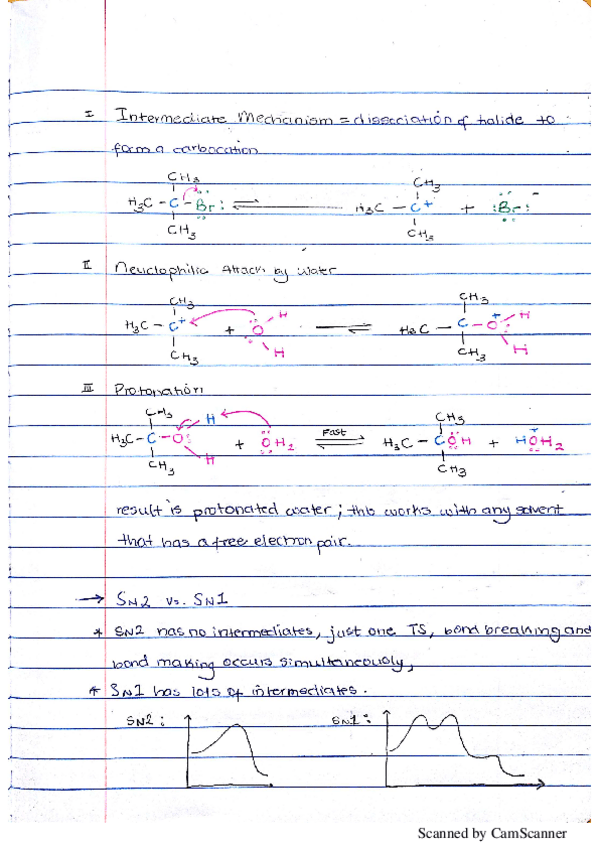 I Intermediate Mechanism = dissociation of halide to
form a carbocation
CH3
H3C - C - Br: ⇌ H3C - C+ + :Br:-
CH3
CH3
CH3
II Neuclophilic Attack by water
CH3
H3C - C+ + O H ⇌ H3C - C - O+ H
CH3 H
CH3
CH3 H
III Protonation
CH3 H
H3C - C - O: + OH2 Fast ⇌ H3C - COH + HOH2+
CH3 H
CH3
CH3
result is protonated water; this works with any solvent
that has a free electron pair.
→ SN2 vs. SN1
* SN2 has no intermediates, just one TS, bond breaking and
bond making occurs simultaneously,
* SN1 has lots of intermediates.
SN2: SN1:
Scanned by CamScanner